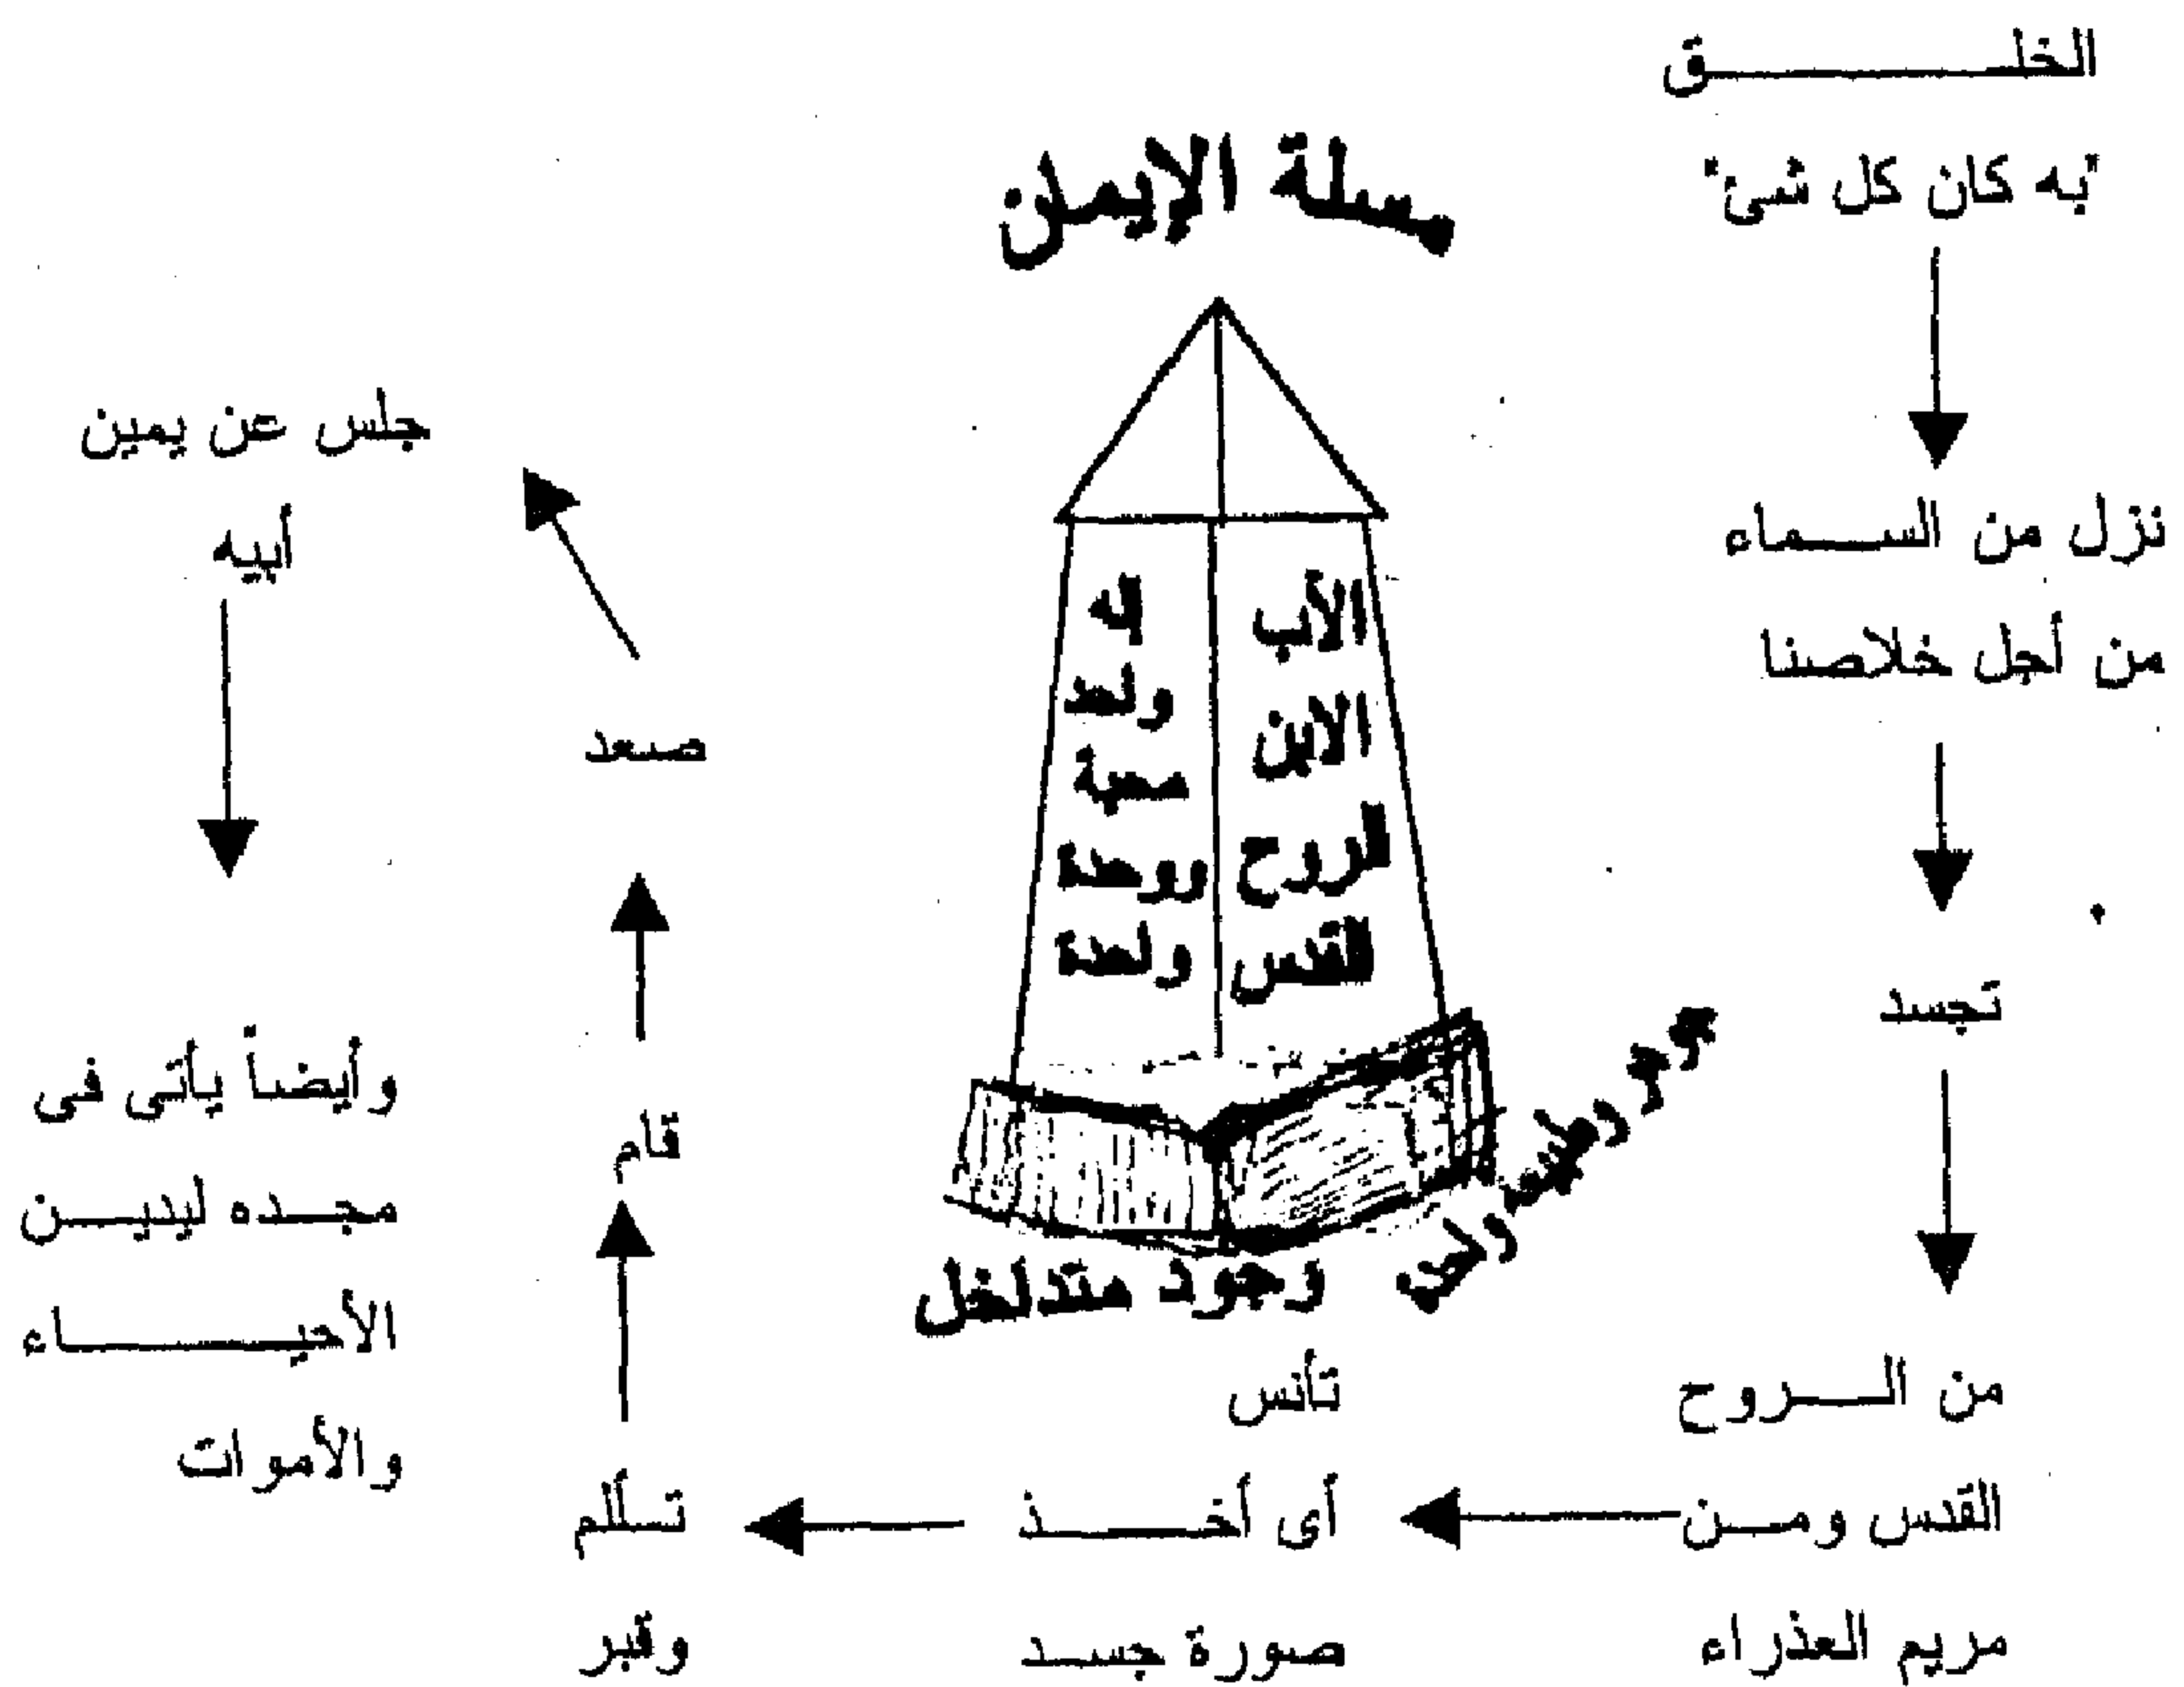 الخلق
"به كان كل شئ"
نزل من السماء
من أجل خلاصنا
تجسد
من الروح
القدس ومن
مريم العذراء
تأنس
أى أخذ
صورة جسد
تألم
وقبر
قام
صعد
جلس عن يمين
أبيه
وأيضاً يأتى فى
مجده ليدين
الأحياء
والأموات
مسلة الإيمن
الأب
الابن
الروح
القدس
إله
واحد
واحدة
وجود متداخل